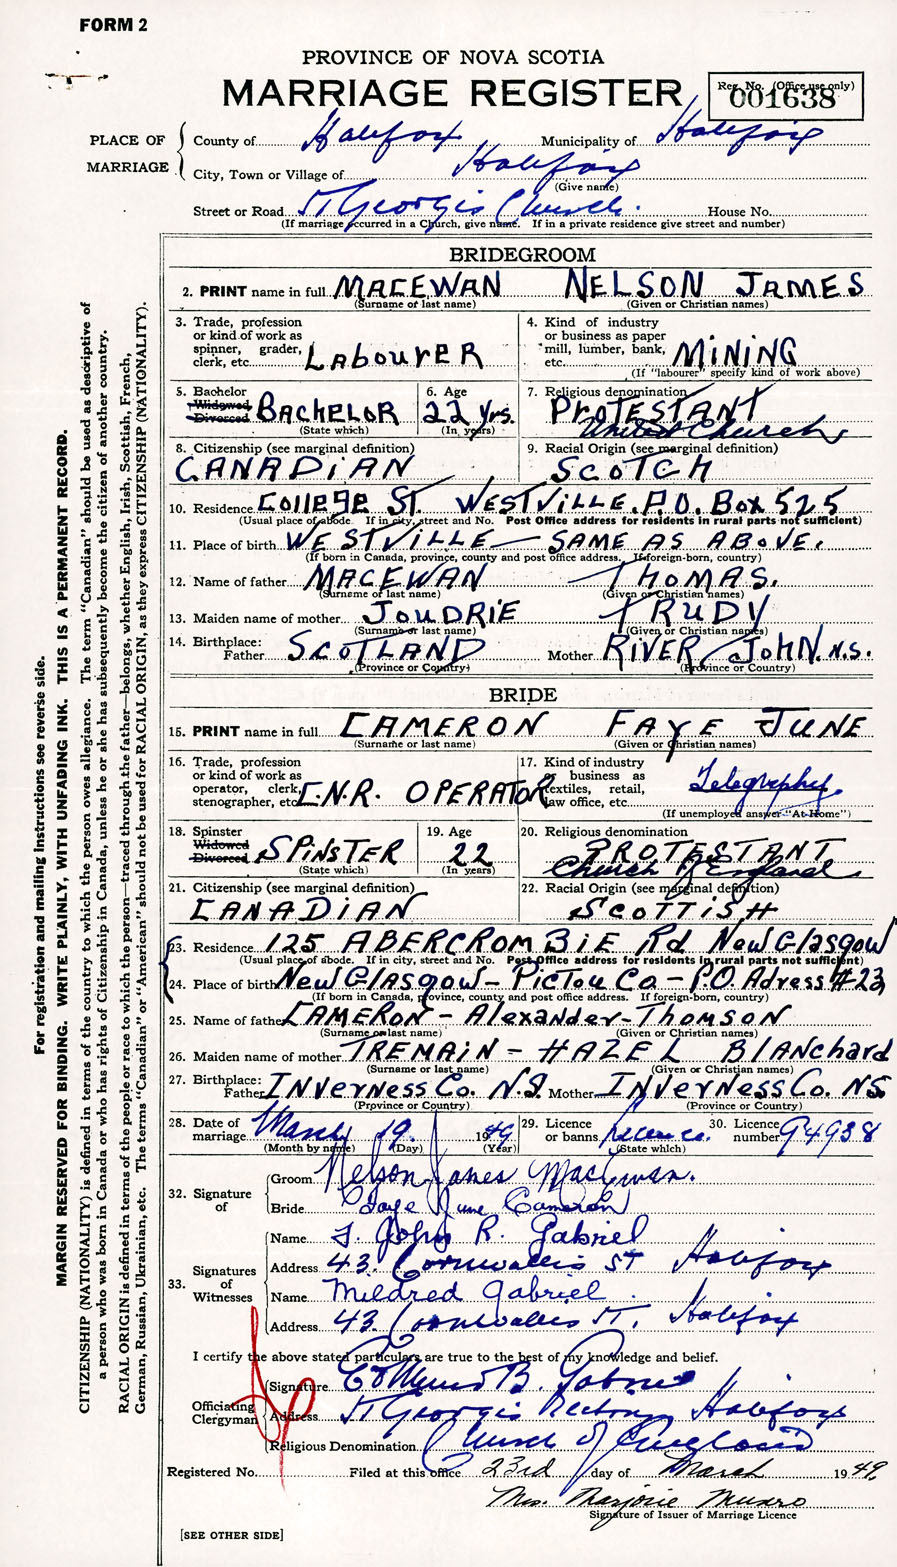 FORM 2
PROVINCE OF NOVA SCOTIA
MARRIAGE REGISTER
Reg. No. (Office use only)
001638
PLACE OF MARRIAGE
County of Halifax Municipality of Halifax
City, Town or Village of Halifax
(Give name)
Street or Road St Georges Church. House No.
(If marriage occurred in a Church, give name. If in a private residence give street and number)
BRIDEGROOM
2. PRINT name in full MACEWAN NELSON JAMES
(Surname or last name) (Given or Christian names)
3. Trade, profession or kind of work as spinner, grader, clerk, etc. LABOURER
4. Kind of industry or business as paper mill, lumber, bank, etc. MINING
(If "labourer" specify kind of work above)
5. Bachelor Widowed Divorced BACHELOR
(State which)
6. Age 22 yrs.
(In years)
7. Religious denomination PROTESTANT
United Church
8. Citizenship (see marginal definition) CANADIAN
9. Racial Origin (see marginal definition) SCOTCH
10. Residence COllEgE ST. WESTVILLE. P.O. Box 525
(Usual place of abode. If in city, street and No. Post Office address for residents in rural parts not sufficient)
11. Place of birth WESTVILLE — SAME AS ABOVE.
(If born in Canada, province, county and post office address. If foreign-born, country)
12. Name of father MACEWAN THOMAS.
(Surname of last name) (Given or Christian names)
13. Maiden name of mother JOUDRIE TRUDY
(Surname or last name) (Given or Christian names)
14. Birthplace: Father SCOTLAND Mother RIVER JOHN. N.S.
(Province or Country) (Province or Country)
BRIDE
15. PRINT name in full CAMERON FAYE JUNE
(Surname or last name) (Given or Christian names)
16. Trade, profession or kind of work as operator, clerk, stenographer, etc. C.N.R. OPERATOR
17. Kind of industry or business as textiles, retail, law office, etc. Telegraphy.
(If unemployed answer "At Home")
18. Spinster Widowed Divorced SPINSTER
(State which)
19. Age 22
(In years)
20. Religious denomination PROTESTANT
Church of England
21. Citizenship (see marginal definition) CANADIAN
22. Racial Origin (see marginal definition) SCOTTISH
23. Residence 125 ABERCROMBIE Rd NEW GLASgow
(Usual place of abode. If in city, street and No. Post Office address for residents in rural parts not sufficient)
24. Place of birth New GlASgow - PicTou Co - P.O. Adress #23
(If born in Canada, province, county and post office address. If foreign-born, country)
25. Name of father CAMERON - Alexander - Thomson
(Surname or last name) (Given or Christian names)
26. Maiden name of mother TREMAIN - HAZEL Blanchard
(Surname or last name) (Given or Christian names)
27. Birthplace: Father INVERNESS Co. N.S. Mother INVERNESS Co. NS.
(Province or Country) (Province or Country)
28. Date of marriage March 19 1949
(Month by name) (Day) (Year)
29. Licence or banns Licence.
(State which)
30. Licence number 94938
32. Signature of
Groom Nelson James MacEwan.
Bride Faye June Cameron
33. Signatures of Witnesses
Name John R. Gabriel
Address 43. Cornwallis ST Halifax
Name Mildred Gabriel
Address 43. Cornwallis St. Halifax
I certify the above stated particulars are true to the best of my knowledge and belief.
Officiating Clergyman
Signature
Address St Georges Rectory Halifax
Religious Denomination Church of England
Registered No. Filed at this office 23rd day of March 1949.
Mrs. Marjorie Munro
Signature of Issuer of Marriage Licence
[SEE OTHER SIDE]
For registration and mailing instructions see reverse side.
MARGIN RESERVED FOR BINDING. WRITE PLAINLY, WITH UNFADING INK. THIS IS A PERMANENT RECORD.
CITIZENSHIP (NATIONALITY) is defined in terms of the country to which the person owes allegiance. The term "Canadian" should be used as descriptive of
a person who was born in Canada or who has rights of Citizenship in Canada, unless he or she has subsequently become the citizen of another country.
RACIAL ORIGIN is defined in terms of the people or race to which the person—traced through the father—belongs, whether English, Irish, Scottish, French,
German, Russian, Ukrainian, etc. The terms "Canadian" or "American" should not be used for RACIAL ORIGIN, as they express CITIZENSHIP (NATIONALITY).